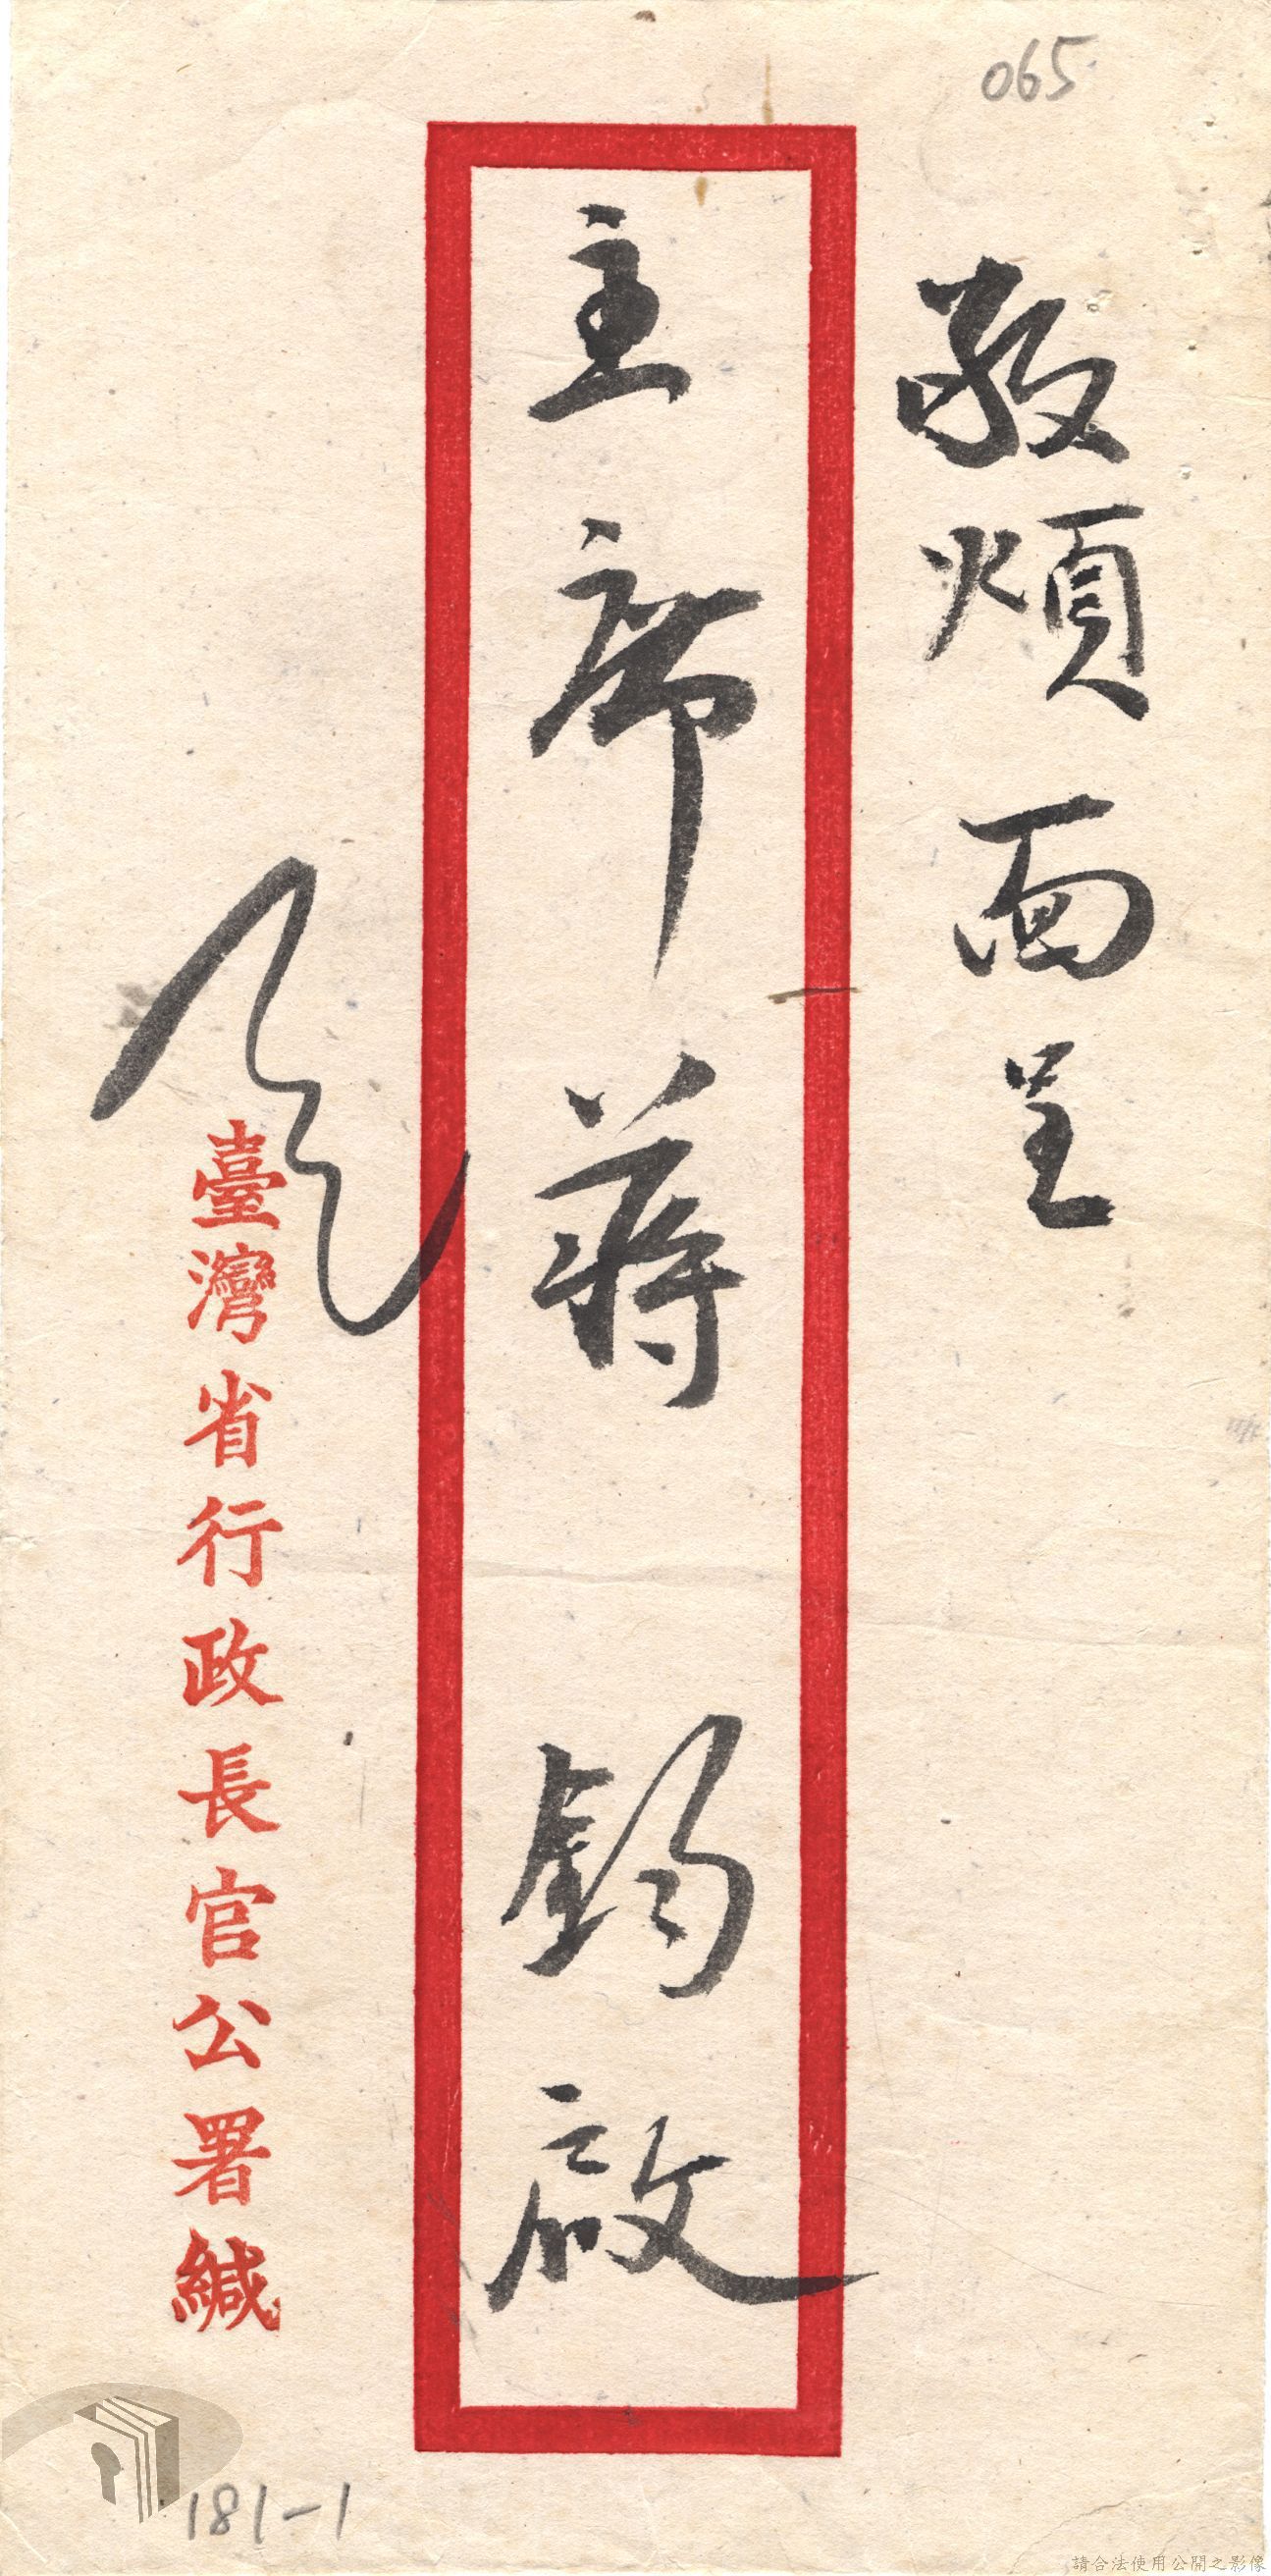 065
敬煩面呈
主席蔣 鈞啟
臺灣省行政長官公署緘
181-1
請合法使用公開之影像